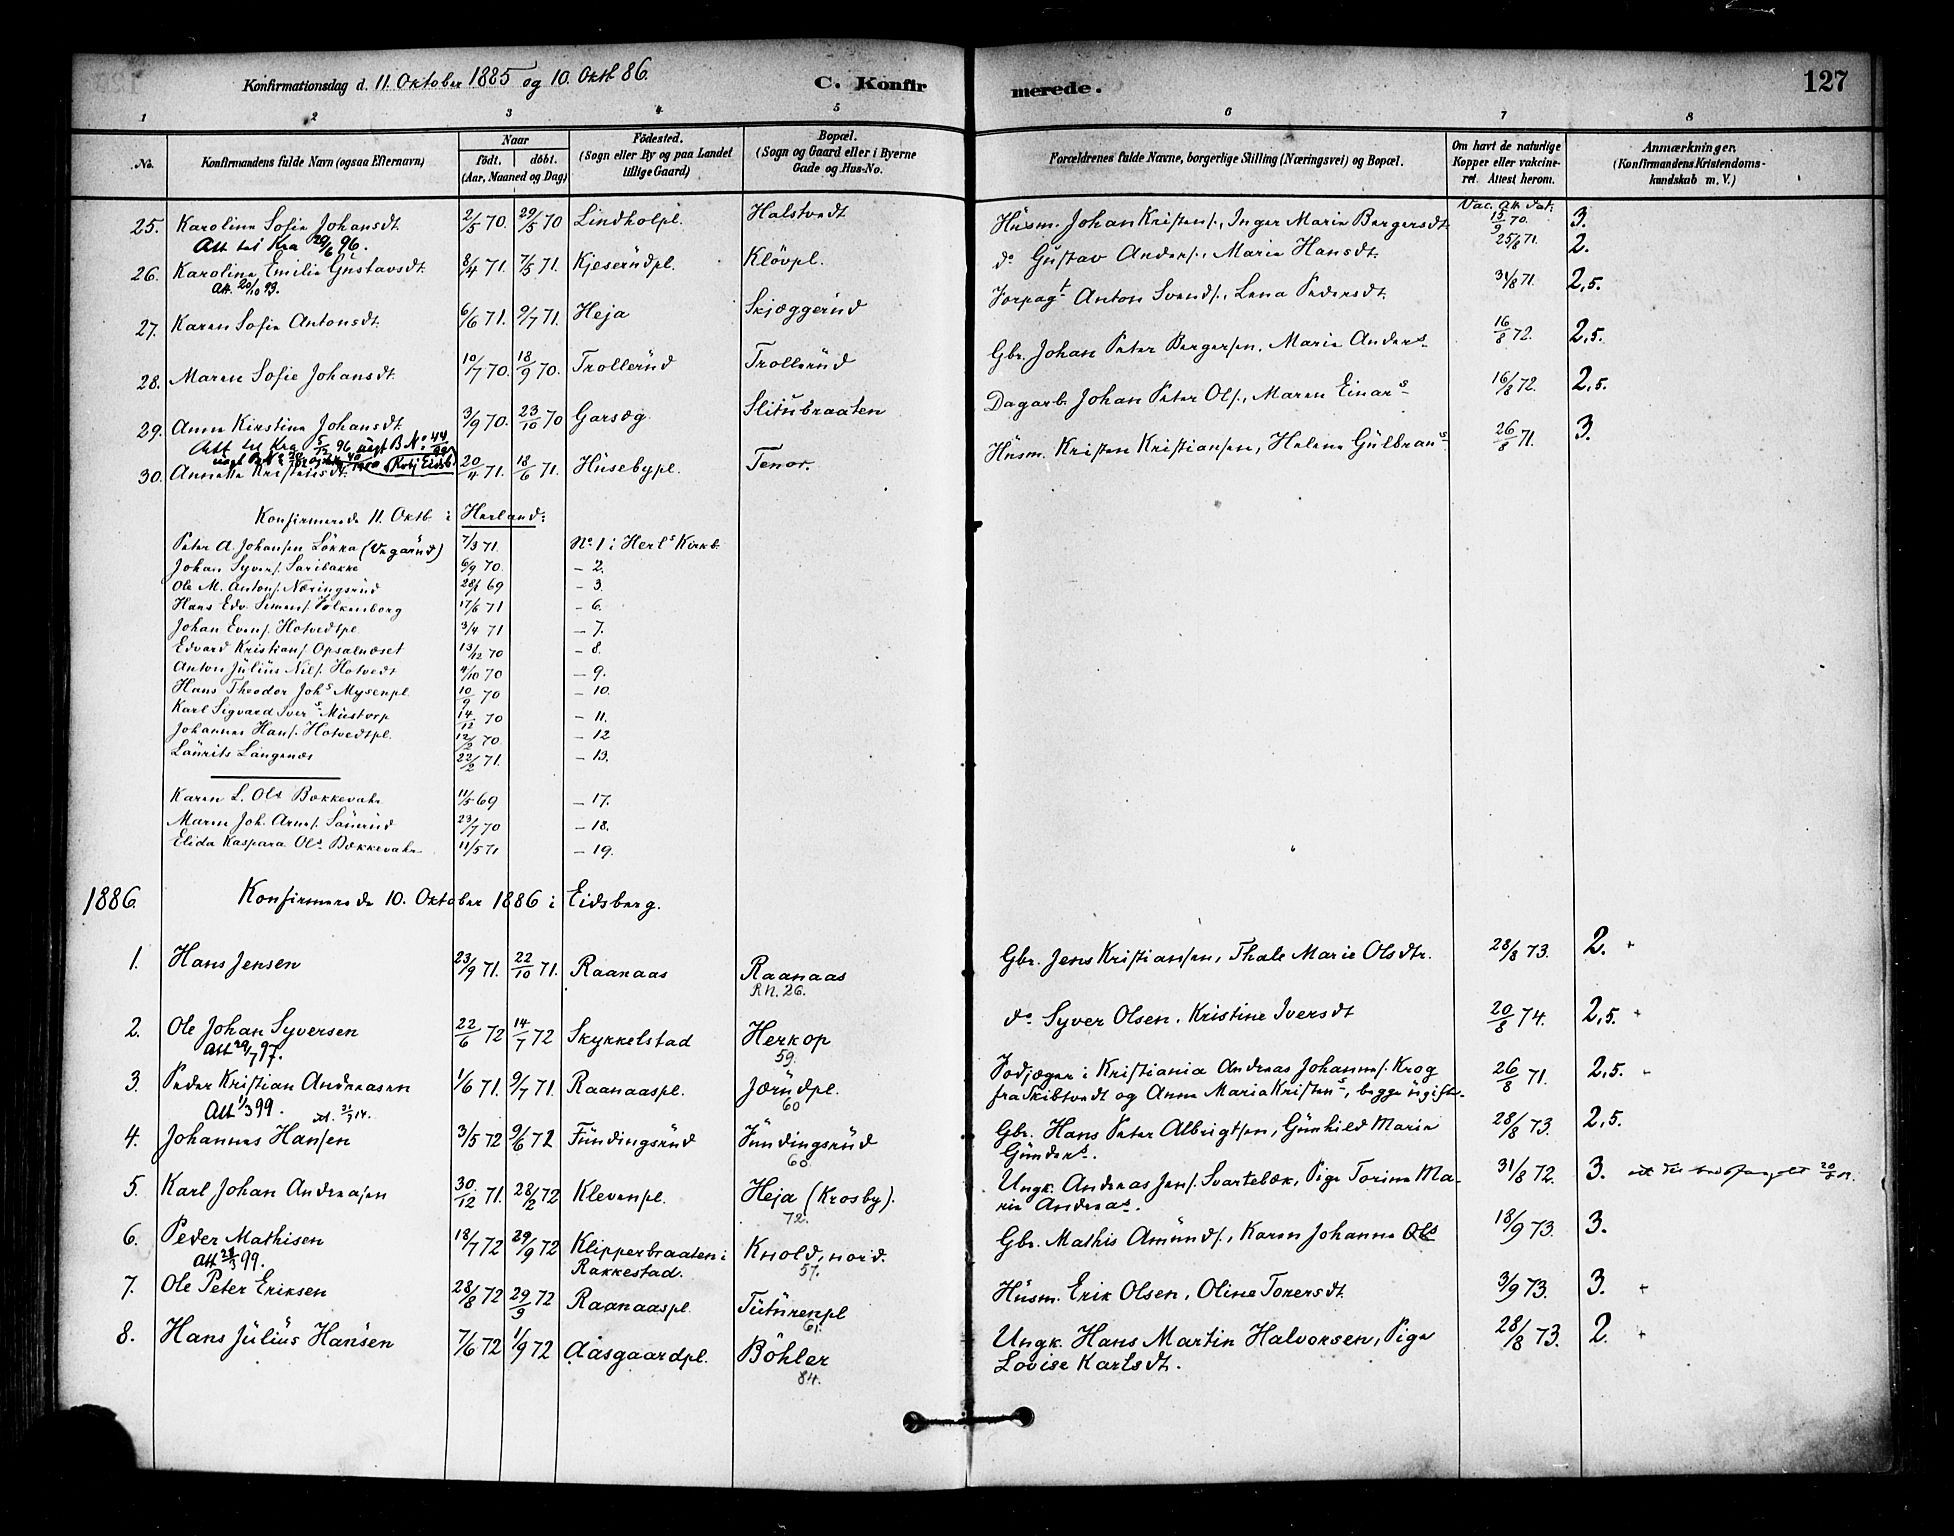 Konfirmationsdag d. 11. Oktober 1885 og 10. Oktb 86. C. Konfir merede. 127
1 2 3 4 5 6 7 8
No. Konfirmandens fulde Navn (ogsaa Efternavn)
Naar
födt. döbt.
(Aar, Maaned og Dag)
Födested.
(Sogn eller By og paa Landet
tillige Gaard)
Bopæl.
(Sogn og Gaard eller i Byerne
Gade og Hus-No.
Forældrenes fulde Navne, borgerlige Stilling (Næringsvei) og Bopæl.
Om havt de naturlige
Kopper eller vakcine-
ret. Attest herom.
Anmærkninger.
(Konfirmandens Kristendoms-
kundskab m. V.)
Vac. Att. Dat.
25. Karoline Sofie Johansdt. 2/5 70. 29/5 70 Lindholpl. Halstvedt Husm. Johan Kristens., Inger Marie Bergersdt. 15/9 70. 3.
Att til Kra 20/6 96.
26. Karoline Emilie Gustavsdt. 8/4 71. 7/5 71. Kjeserudpl. Klövpl. do Gustav Anders., Marie Hansdt. 25/8 71. 2.
Att. 20/10 93.
27. Karen Sofie Antonsdt. 6/6 71. 9/7 71. Heja Skjæggerud Forpagt. Anton Svends., Lena Pedersdt. 31/8 71. 2,5.
28. Maren Sofie Johansdt. 10/7 70. 18/9 70. Trollerud Trollerud Gbr. Johan Peter Bergersen, Marie Anders 16/8 72. 2,5.
29. Anne Kirstine Johansdt. 3/9 70. 23/10 70 Garsæg Slitubraaten Dagarb. Johan Peter Ols., Maren Einars 16/8 72. 2,5.
Att til Kra 5/12 96 B No 44
30. Annette Kristensdt. 20/4 71. 18/6 71. Husebypl. Tenor. Husm. Kristen Kristiansen, Helene Gulbrans 26/8 71. 3.
Konfirmerede 11. Oktb i Herland:
Peter A. Johansen Lökka (Vegarud) 7/3 71. No 1 i Herls Kirkb.
Johan Syvers. Saribakke 6/9 70. - 2.
Ole M. Antons. Næringsrud 28/1 69 - 3
Hans Edv. Simens. Folkenborg 17/6 71 - 6.
Johan Evens. Hotvedtpl. 3/4 71 - 7.
Edvard Kristians. Opsalnæset 13/12 70 - 8.
Anton Julius Nils. Hotvedt 4/10 70 - 9.
Hans Theodor Johs Mysenpl. 10/9 70 - 10.
Karl Sigvard Ivers Mustorp 14/12 70 - 11.
Johannes Hans. Hotvedtpl. 12/2 70. - 12
Laurits Langenæs 22/2 71. - 13.
Karen L. Ols Bækkevahr 11/5 69 - 17.
Maren Joh. Arnes. Saurud 23/7 70 - 18.
Elida Kaspara Ols Bækkevahr 11/5 71 - 19.
1886. Konfirmerede 10. Oktober 1886 i Eidsberg.
1. Hans Jensen 23/9 71. 22/10 71. Raanaas Raanaas Gbr. Jens Kristiansen, Thale Marie Olsdtr. 28/8 73. 2.
RN. 26.
2. Ole Johan Syversen 22/6 72 14/7 72 Skykkelstad Herkop do Syver Olsen, Kristine Iversdt 20/8 74. 2,5.
Att 29/7 97. 59.
3. Peder Kristian Andreasen 1/6 71. 9/7 71. Raanaaspl. Jærudpl. Fodjæger i Kristiania Andreas Johanns. Krog 26/8 71. 2,5.
Att 1/3 99. att. 21/7 14. 60 fra Skibtvedt og Anne Marie Kristens, begge ugifte.
4. Johannes Hansen 3/5 72 9/6 72 Fundingsrud Fundingsrud Gbr. Hans Peter Albrigtsen, Gunhild Marie 28/8 73. 2,5.
60. Gunders.
5. Karl Johan Andreasen 30/12 71. 28/2 72 Klevenpl. Heja (Krosby). Ungk. Andreas Jens. Svartebæk, Pige Torine Ma- 31/8 72. 3.
72. rie Andreas.
6. Peder Mathisen 18/7 72 29/9 72 Klipperbraaten i Knold, nord. Gbr. Mathis Amunds., Karen Johanne Ols 18/9 73. 3.
Att 28/3 99. Rakkestad. 57.
7. Ole Peter Eriksen 28/8 72 29/9 72 Raanaaspl. Tuturenpl Husm. Erik Olsen, Oline Torersdt. 3/9 73. 3.
61.
8. Hans Julius Hansen 7/6 72 1/9 72 Aasgaardpl. Böhler Ungk. Hans Martin Halvorsen, Pige 28/8 73. 2.
84. Lovise Karlsdt.